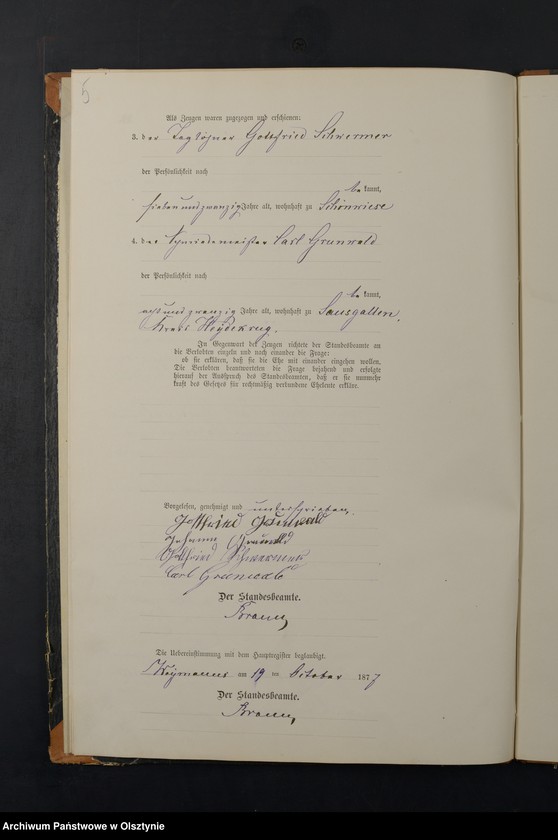 5
Als Zeugen waren zugezogen und erschienen:
3. der Tagelöhner Gottfried Schwermer
der Persönlichkeit nach
be kannt,
siebenundzwanzig Jahre alt, wohnhaft zu Schönwiese
4. der Schmiedemeister Carl Grunwald
der Persönlichkeit nach
be kannt,
achtundzwanzig Jahre alt, wohnhaft zu Sausgallen,
Kreis Heydekrug.
In Gegenwart der Zeugen richtete der Standesbeamte an
die Verlobten einzeln und nach einander die Frage:
ob sie erklären, daß sie die Ehe mit einander eingehen wollen.
Die Verlobten beantworteten die Frage bejahend und erfolgte
hierauf der Ausspruch des Standesbeamten, daß er sie nunmehr
kraft des Gesetzes für rechtmäßig verbundene Eheleute erkläre.
Vorgelesen, genehmigt und unterschrieben,
Gottfried Grunwald
Johanna Grunwald
Gottfried Schwermer
Carl Grunwald
Der Standesbeamte.
Die Uebereinstimmung mit dem Hauptregister beglaubigt.
am 19 ten October 1877
Der Standesbeamte.
Archiwum Państwowe w Olsztynie